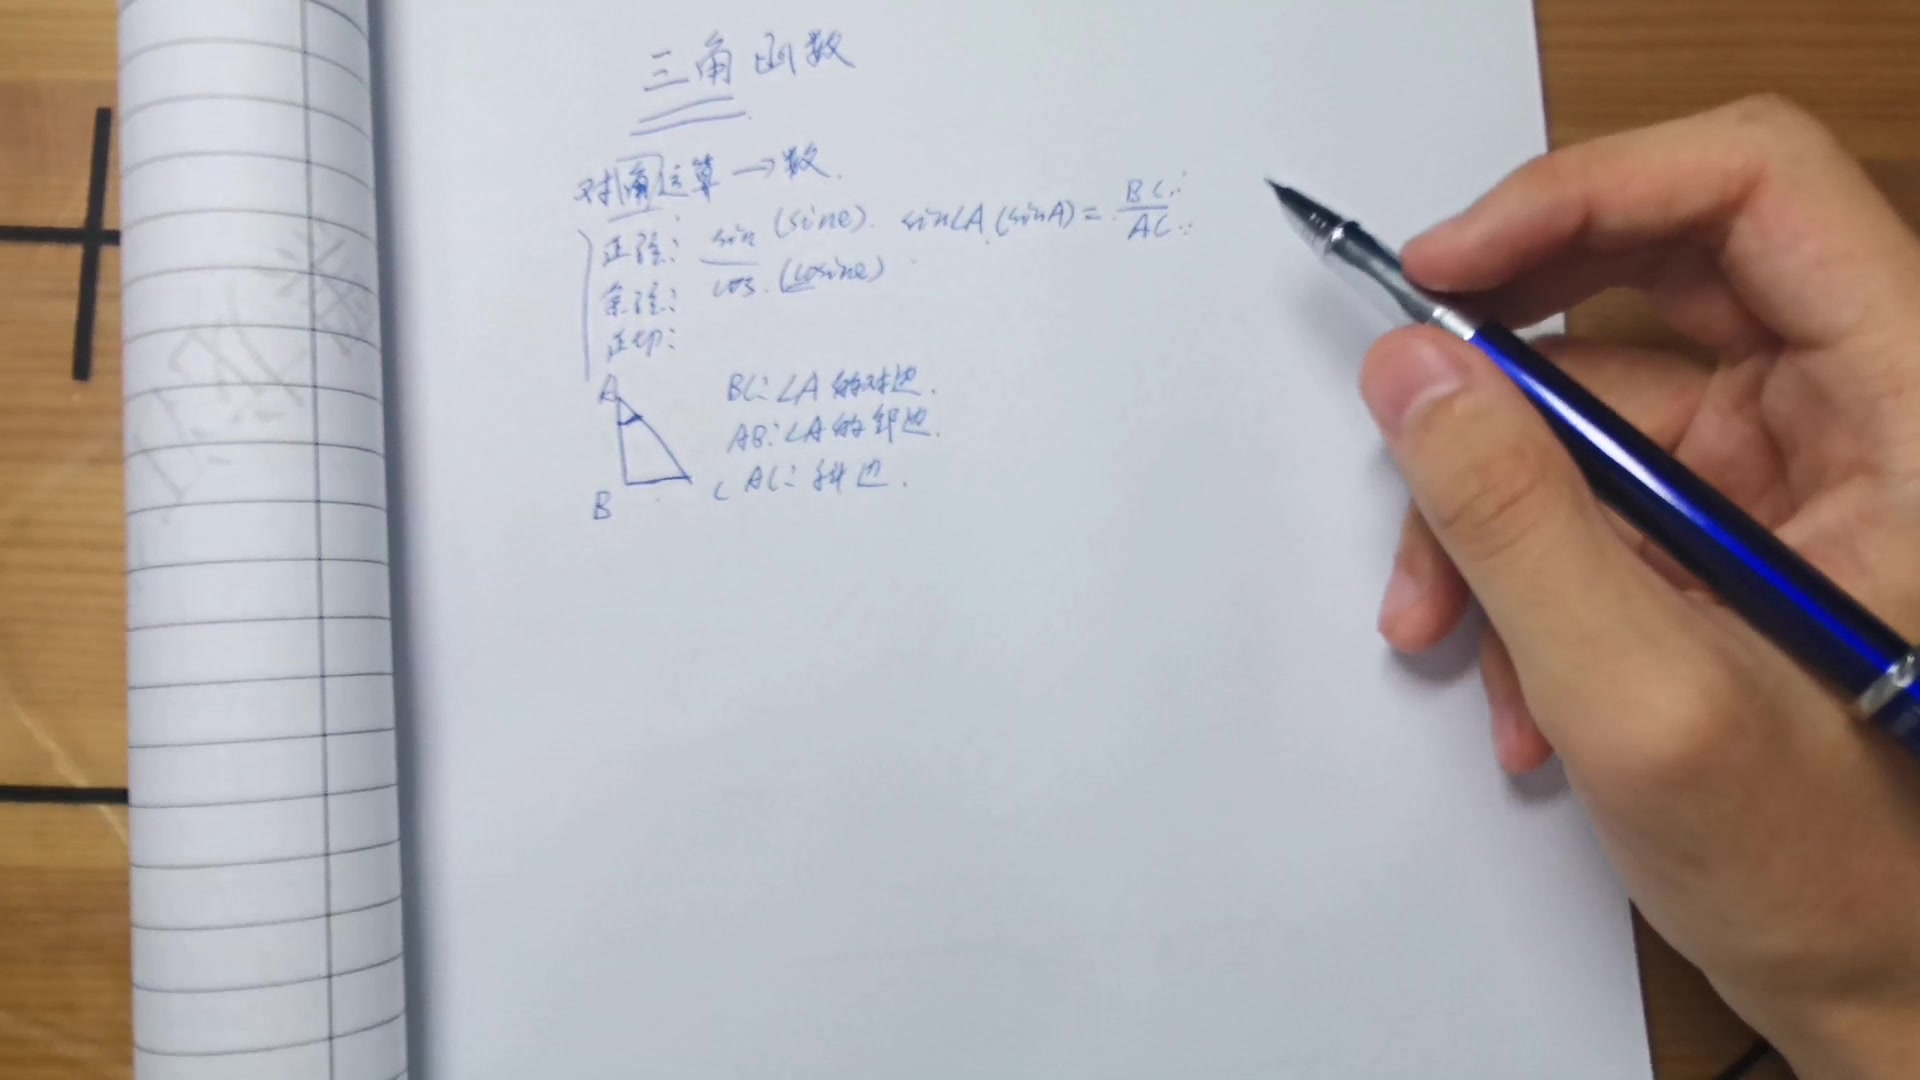 三角函数
对角运算→数.
正弦: sin (sine). sin∠A.(sinA)=BC/AC
余弦: cos. (cosine)
正切:
A BC:∠A的对边.
AB:∠A的邻边.
C AC:斜边.
B